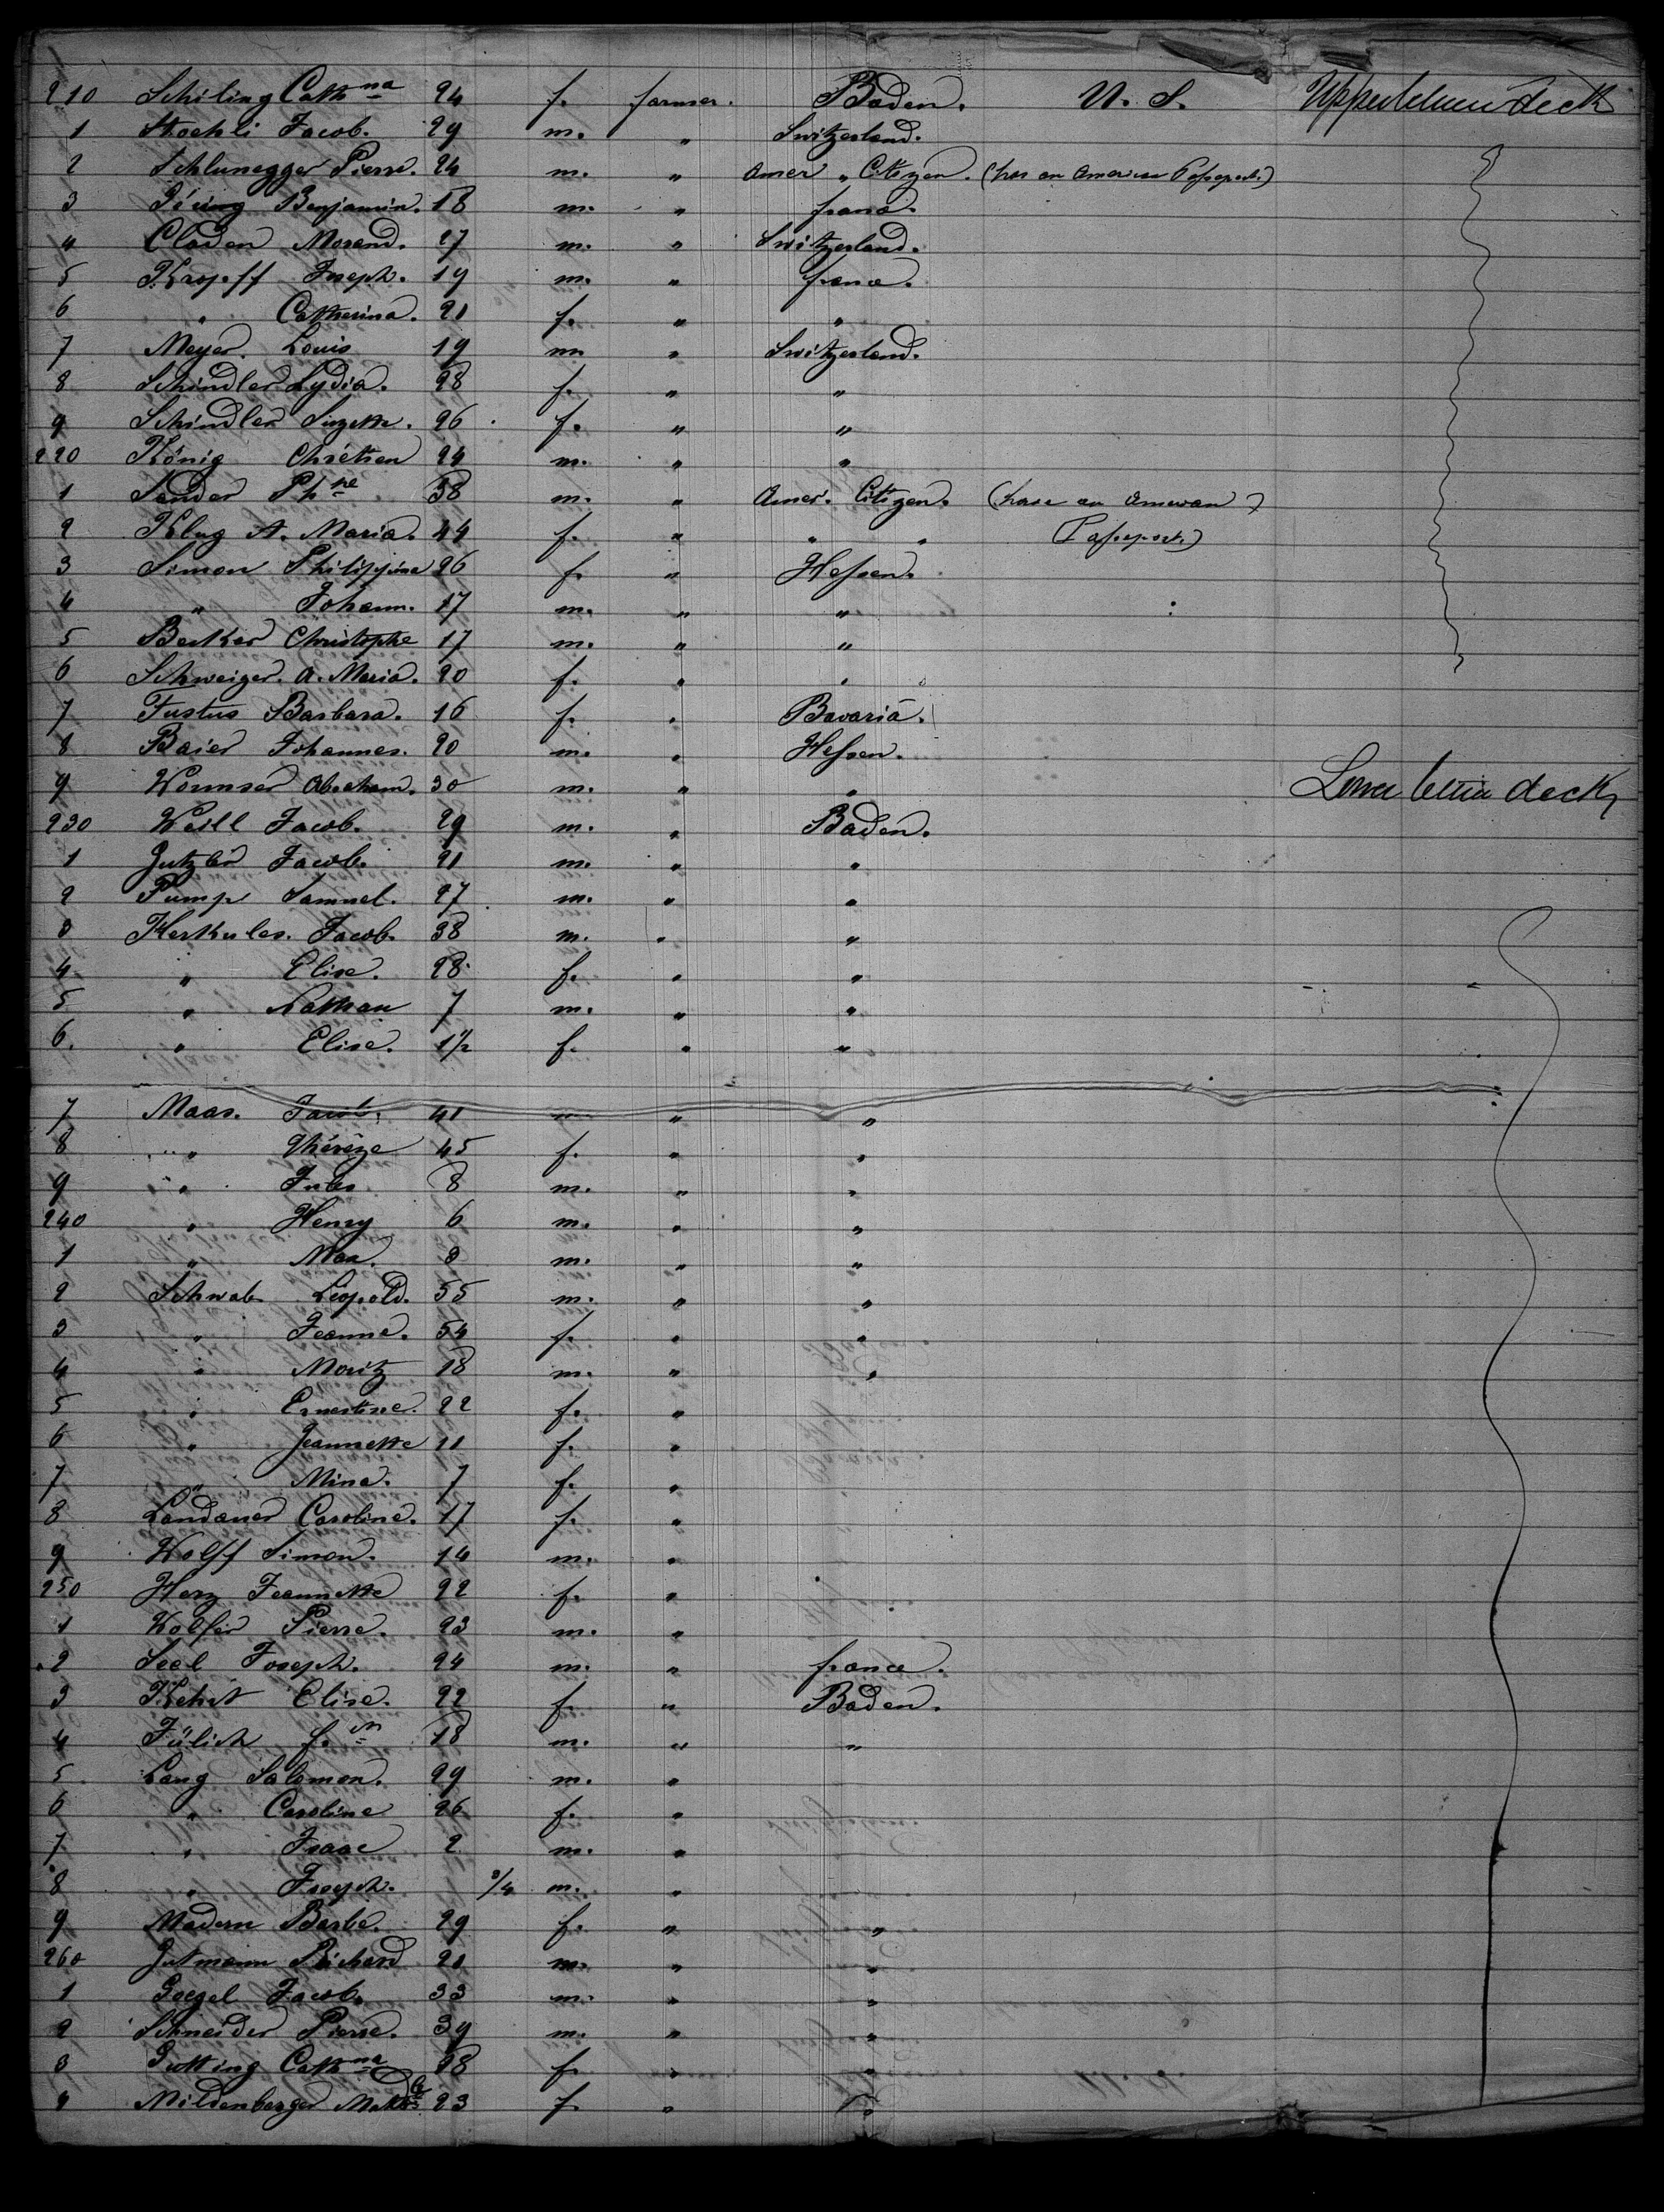 210 Schiling Cathna 24 f. farmer. Baden. U. S. Upper between deck
1 Stoehli Jacob. 29 m. " Switzerland.
2 Schlunegger Pierre. 24 m. " Amer " Citizen. (has an American Passport.)
3 Benjamin. 18 m. " france.
4 Claden Morand. 27 m. " Switzerland.
5 Kropff Joseph. 19 m. " france.
6 " Catherina. 21 f. " "
7 Meyer. Louis 19 m. " Switzerland.
8 Schindler Lydia. 28 f. " "
9 Schindler Suzette. 26 f. " "
220 König Chrétien 24 m. " "
1 Sender Phne 38 m. " Amer. Citizen. (have an American
2 Klug A. Maria. 44 f. " " " Passport.)
3 Simon Philippine 26 f. " Hessen.
4 " Johann. 17 m. " "
5 Becker Christophe 17 m. " "
6 Schweiger. A. Maria. 20 f. " "
7 Justus Barbara. 16 f. " Bavaria.
8 Baier Johannes. 20 m. " Hessen.
9 Wormser Abraham. 30 m. " " Lower between deck
230 Weill Jacob. 29 m. " Baden.
1 Gutzler Jacob. 21 m. " "
2 Pump Samuel. 27 m. " "
3 Herkules. Jacob. 38 m. " "
4 " Elise. 28 f. " "
5 " Nathan 7 m. " "
6. " Elise. 1 1/2 f. " "
7 Maas. Jacob. 41 m " "
8 " Thérèze 45 f. " "
9 " Jules 8 m. " "
240 " Henry 6 m. " "
1 " Max. 3 m. " "
2 Schwab Léopold. 55 m. " "
3 " Jeanne. 54 f. " "
4 " Moritz 18 m. " "
5 " Ernestine. 22 f. "
6 " Jeannette 11 f. "
7 " Mina. 7 f. "
8 Landauer Caroline. 17 f. "
9 Wolff Simon. 14 m. "
250 Herz Jeannette 22 f. "
1 Wolfer Pierre. 23 m. "
2 Seel Joseph. 24 m. " france.
3 Kehrt Elise. 22 f. " Baden.
4 Jülich f. 18 m. " "
5 Lang Salomon. 29 m. "
6 " Caroline 26 f. "
7 " Isaac 2 m. "
8 " Joseph. 3/4 m. "
9 Madern Barbe. 29 f. " "
260 Gutmann Richard 21 m. " "
1 Goegel Jacob. 33 m. " "
2 Schneider Pierre. 39 m. " "
3 Gutting Cathna 28 f. " "
4 Mildenberger 23 f. "